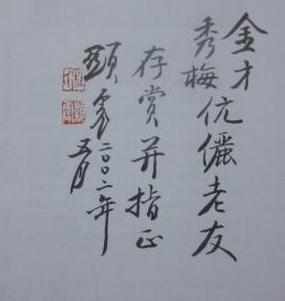 金才
秀梅伉儷老友
存赏并指正
二〇〇二年
五月